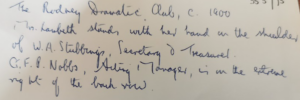 The Rodney Dramatic Club, c. 1900
stands with her hand on the shoulder
of W.A. Stubbings, Secretary & Treasurer.
G.F.P. Nobbs, Acting Manager, is on the extreme
right of the back row.